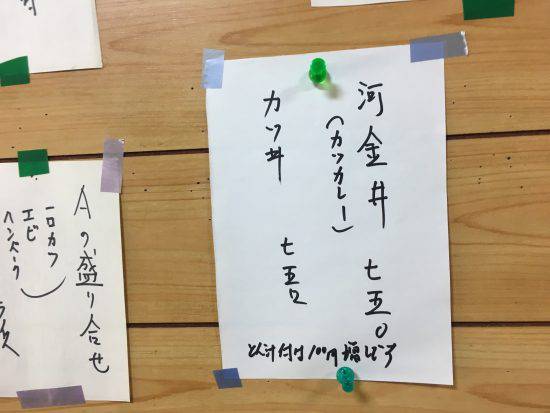 河金丼 七五〇
(カツカレー)
カツ丼 七五〇
とん汁付は100円増しです
Aの盛り合せ
一口カツ
エビ
ハンバーク